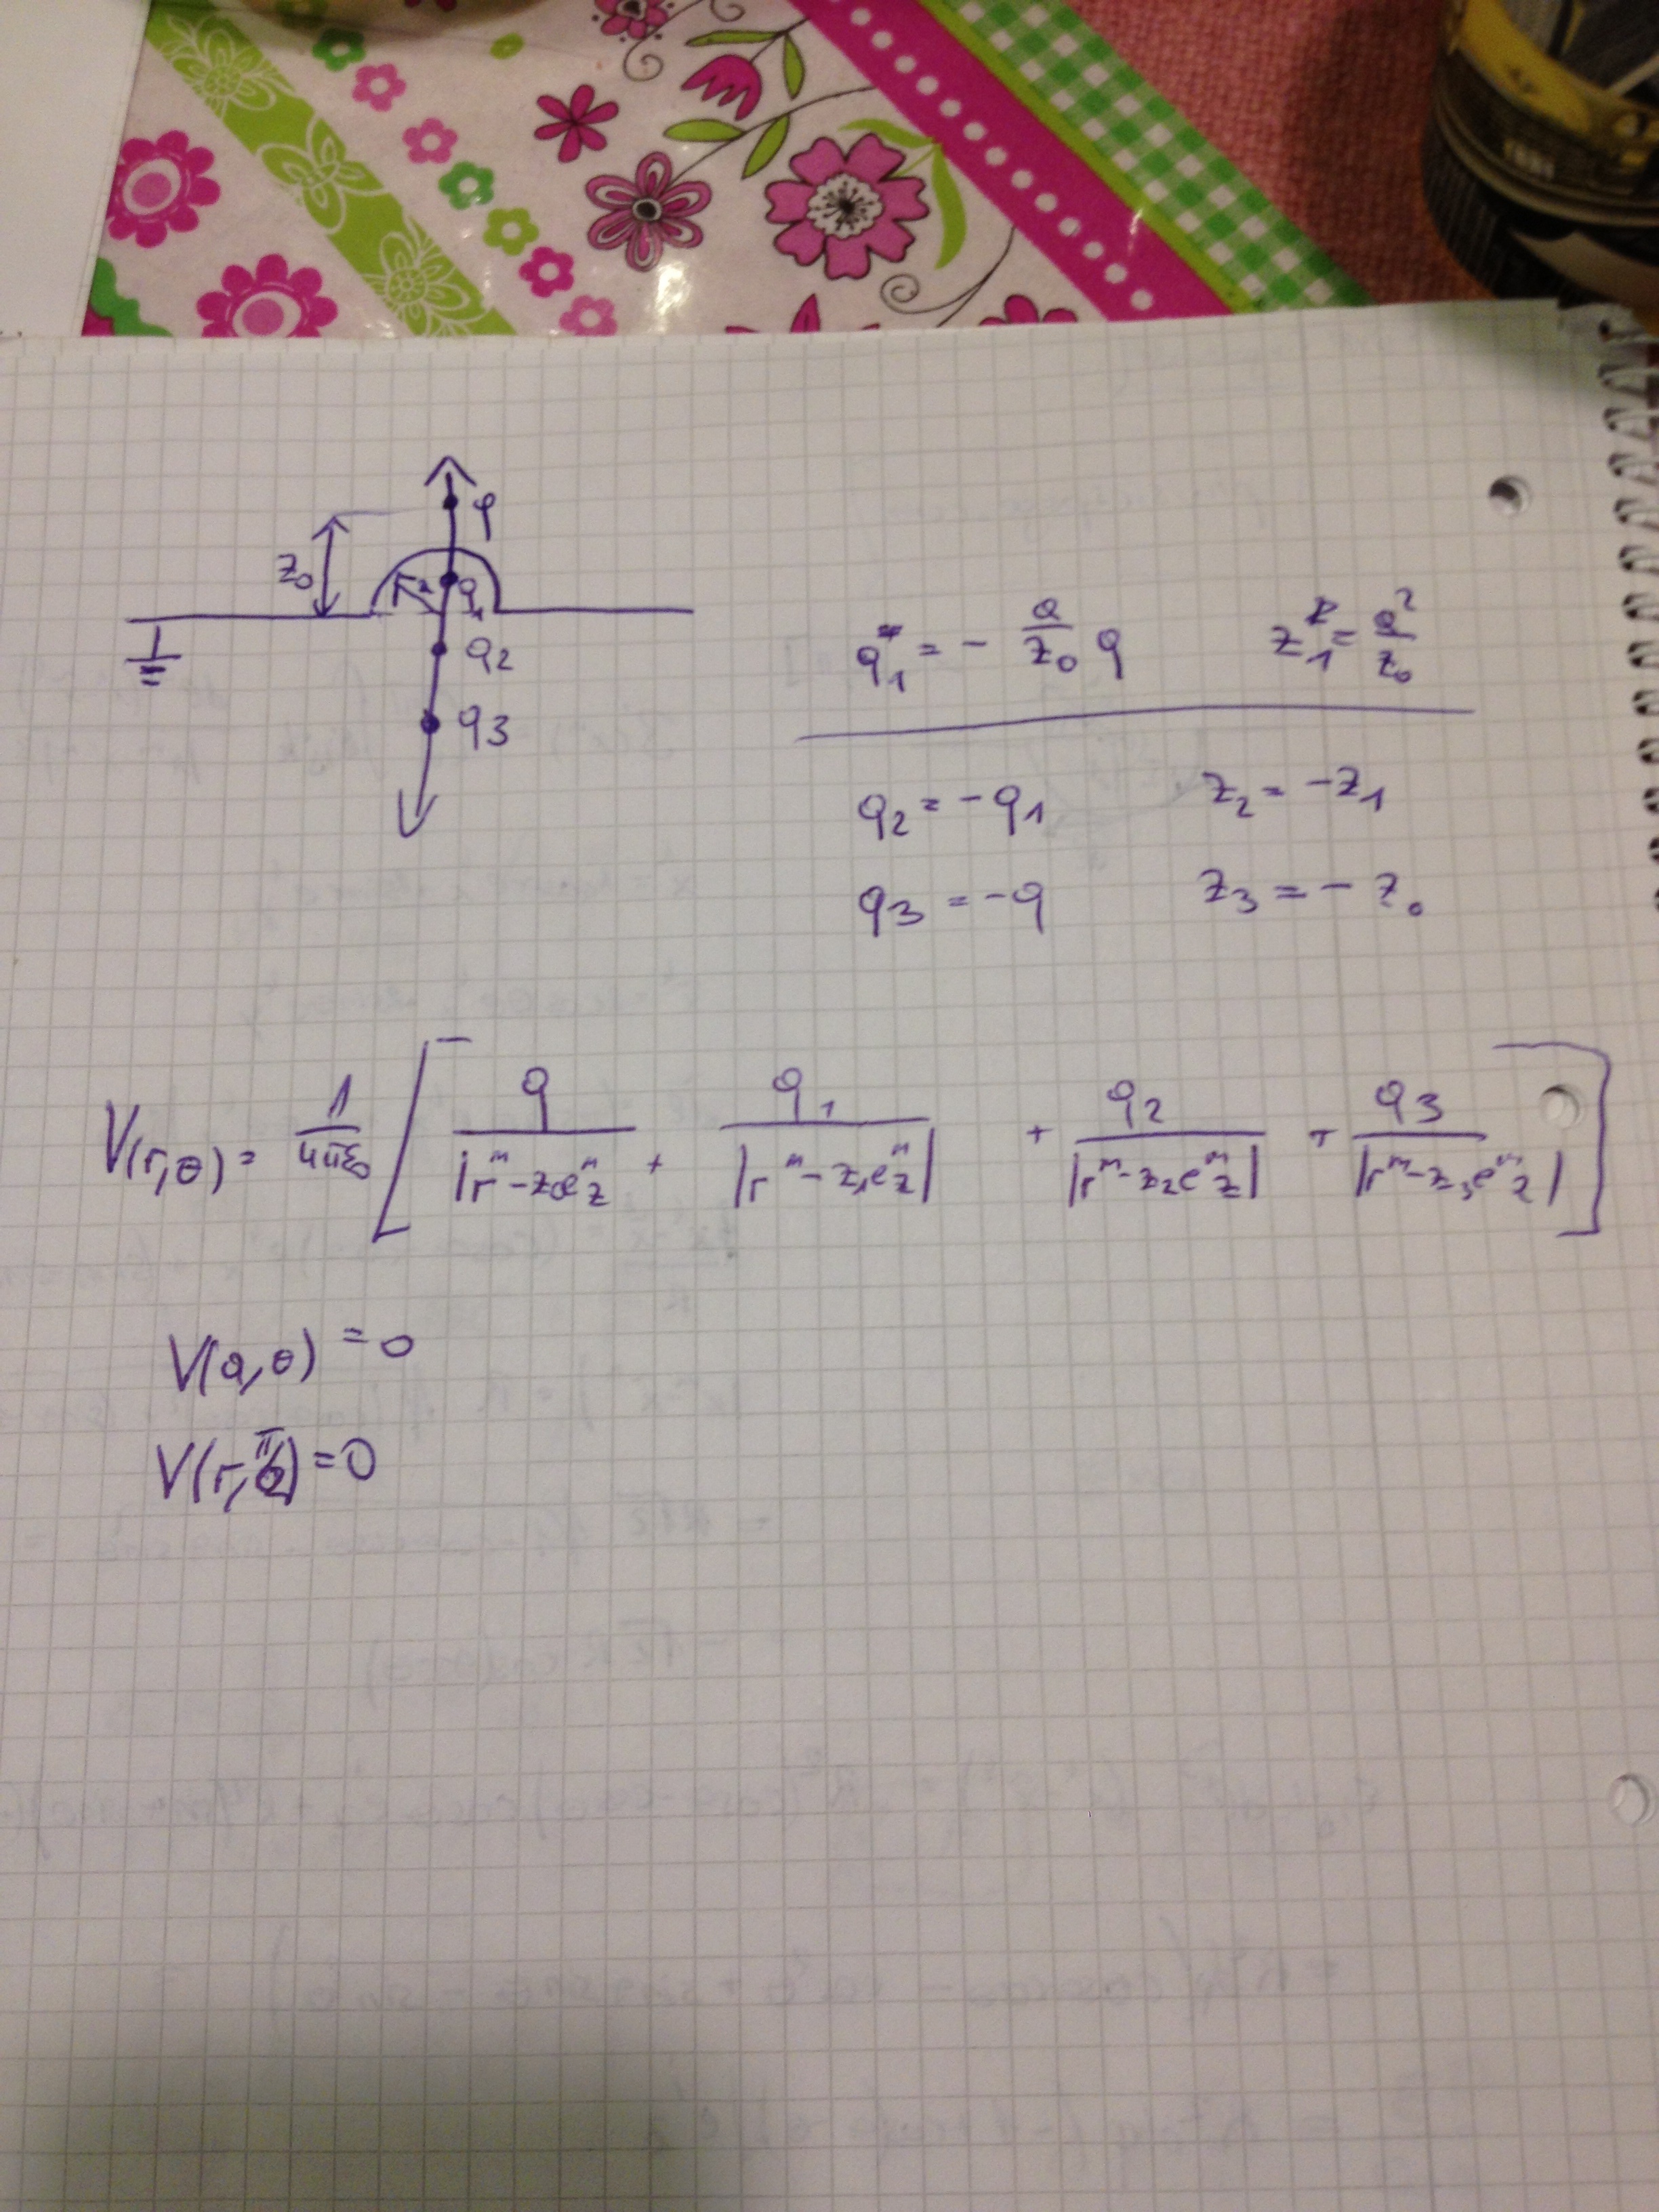 q
z₀
a
q₁
q₂
q₃
q₁ = - a/z₀ q    z₁ = a²/z₀
q₂ = -q₁    z₂ = -z₁
q₃ = -q    z₃ = -z₀
V(r,θ) = 1/4πε₀ [ q/|r⃗ - z₀e⃗z| + q₁/|r⃗ - z₁e⃗z| + q₂/|r⃗ - z₂e⃗z| + q₃/|r⃗ - z₃e⃗z| ]
V(a,θ) = 0
V(r,π/2) = 0